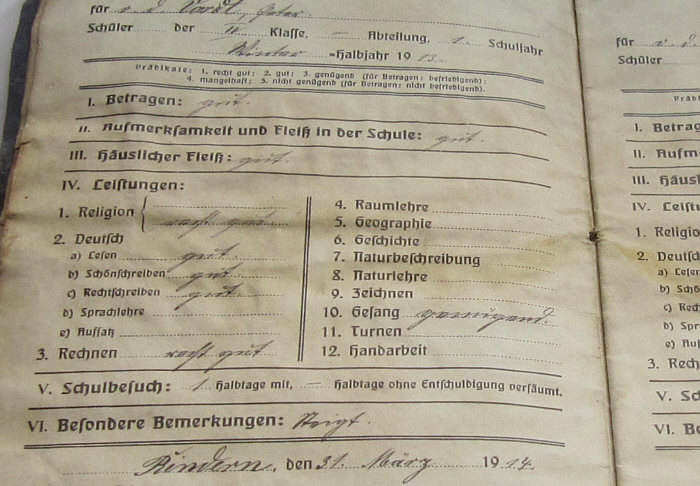 für v. d. Vardt, Peter.
Schüler der IV. Klasse, — Abteilung, 1. Schuljahr
Winter =Halbjahr 1913.
Prädikate: 1. recht gut; 2. gut; 3. genügend (für Betragen: befriedigend);
4. mangelhaft; 5. nicht genügend (für Betragen: nicht befriedigend).
I. Betragen: gut.
II. Aufmerksamkeit und Fleiß in der Schule: gut.
III. Häuslicher Fleiß: gut.
IV. Leistungen:
1. Religion { recht gut
2. Deutsch
a) Lesen gut.
b) Schönschreiben gut.
c) Rechtschreiben gut.
d) Sprachlehre
e) Aufsatz
3. Rechnen recht gut
4. Raumlehre
5. Geographie
6. Geschichte
7. Naturbeschreibung
8. Naturlehre
9. Zeichnen
10. Gesang genügend.
11. Turnen
12. Handarbeit
V. Schulbesuch: 1 Halbtage mit, — Halbtage ohne Entschuldigung versäumt.
VI. Besondere Bemerkungen: Steigt.
Rindern, den 31. März 1914.
für v. d.
Schüler
Präd
I. Betrag
II. Aufm
III. Häusl
IV. Leistu
1. Religio
2. Deutsc
a) Lesen
b) Schö
c) Rech
d) Spr
e) Auf
3. Rech
V. Sc
VI. Be